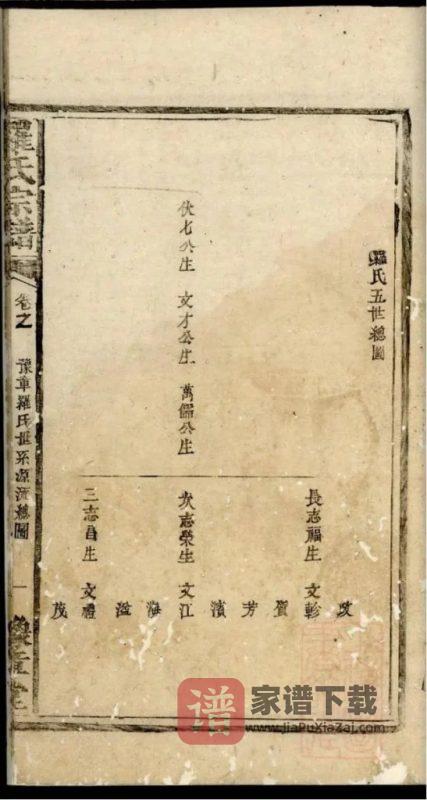 羅氏五世總圖
伏七公生 文才公生 萬儒公生
長志福生 文軫
政
賀
芳
次志榮生 文江
濱
海
溢
三志昌生 文禮
茂
羅氏宗譜
卷之
豫章羅氏世系源流總圖
一
譜
家谱下载
www.JiaPuXiaZai.com